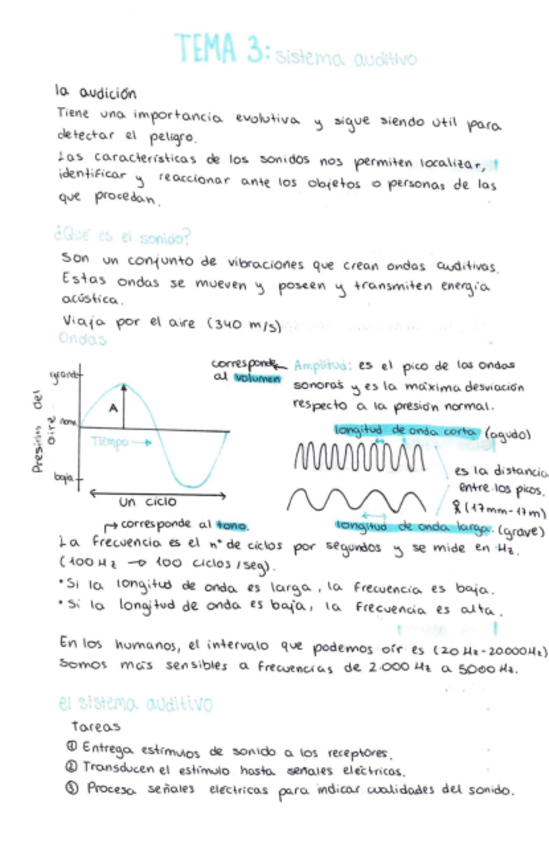 TEMA 3: sistema auditivo
la audición
Tiene una importancia evolutiva y sigue siendo útil para
detectar el peligro.
Las características de los sonidos nos permiten localizar,
identificar y reaccionar ante los objetos o personas de las
que procedan.
¿Qué es el sonido?
Son un conjunto de vibraciones que crean ondas auditivas.
Estas ondas se mueven y poseen y transmiten energía
acústica.
Viaja por el aire (340 m/s)
Ondas
corresponde
al volumen
Amplitud: es el pico de las ondas
sonoras y es la máxima desviación
respecto a la presión normal.
Presión del
aire
grande
norm
baja
A
Tiempo
un ciclo
longitud de onda corta (agudo)
es la distancia
entre los picos.
(17mm-17m)
longitud de onda larga. (grave)
corresponde al tono.
La frecuencia es el nº de ciclos por segundos y se mide en Hz.
(100 Hz → 100 ciclos/seg).
• Si la longitud de onda es larga, la frecuencia es baja.
• Si la longitud de onda es baja, la frecuencia es alta.
En los humanos, el intervalo que podemos oír es (20 Hz - 20000Hz)
Somos más sensibles a frecuencias de 2.000 Hz a 5000 Hz.
el sistema auditivo
Tareas
① Entrega estímulos de sonido a los receptores.
② Transducen el estímulo hasta señales eléctricas.
③ Procesa señales eléctricas para indicar cualidades del sonido.